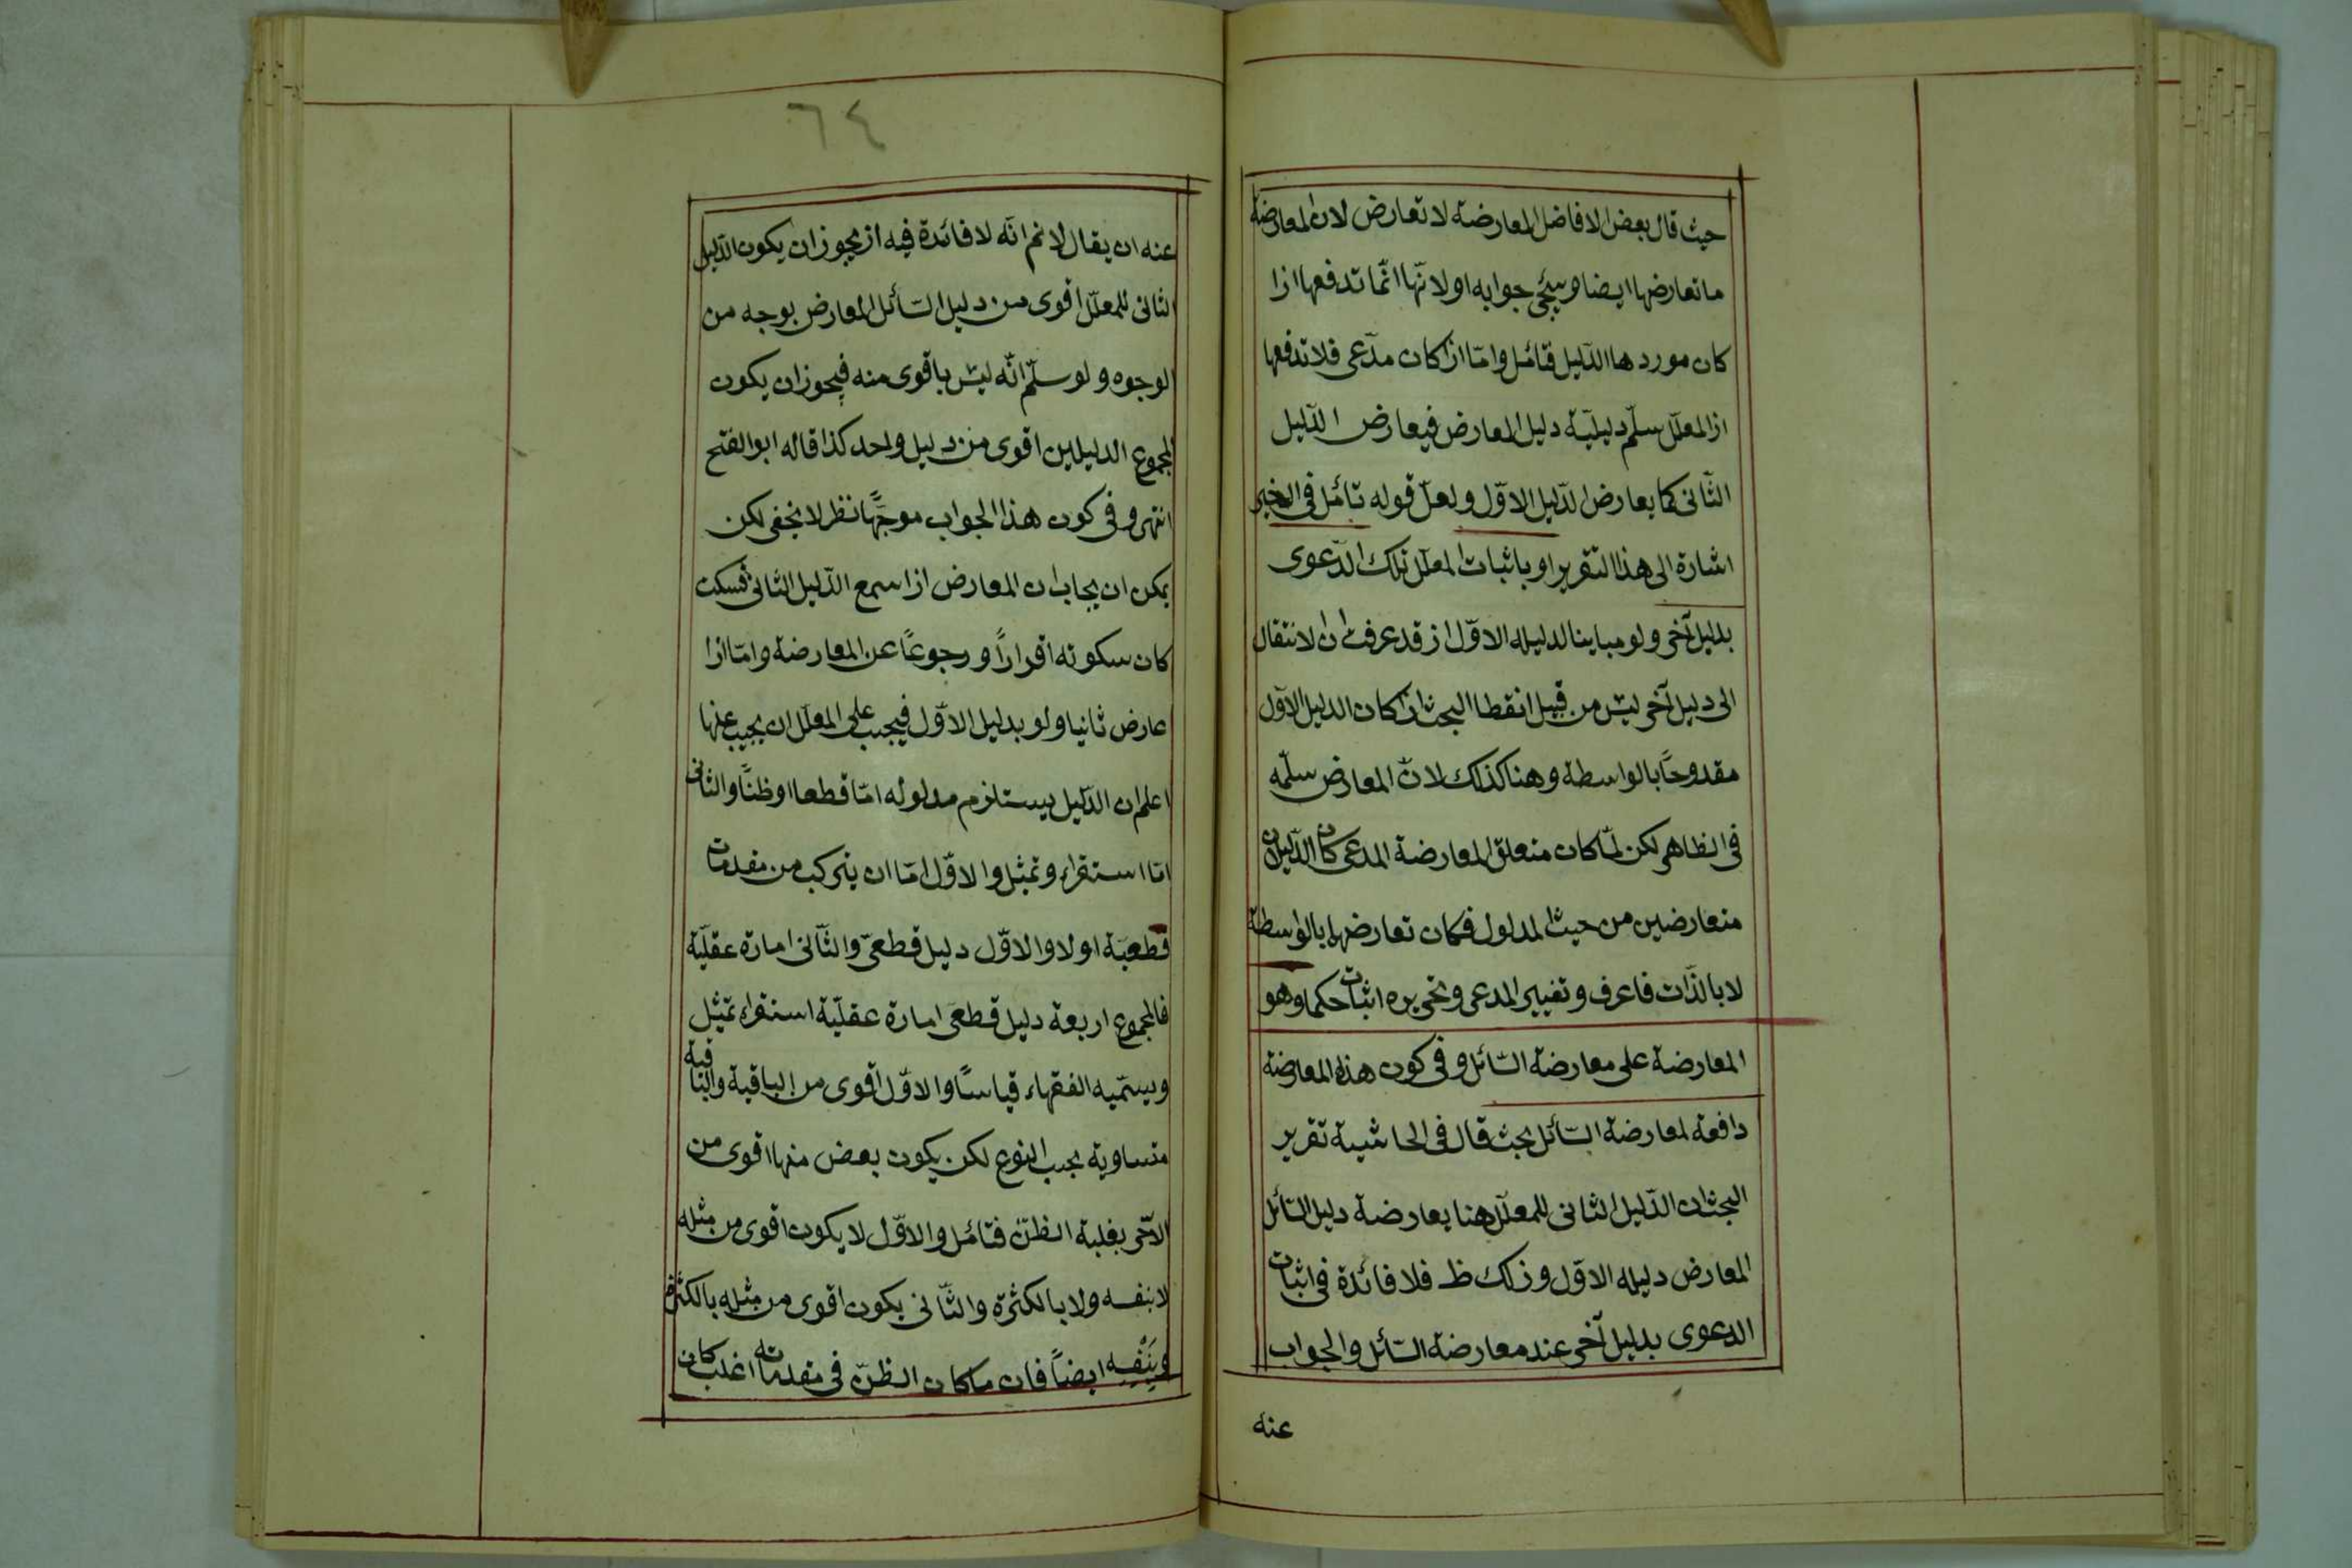 حيث قال بعض الافاضل المعارضة لا تعارض لان المعارضة
ما تعارضها ايضا وسيجئ جوابه اولانّها انّما تدفعها اذا
كان موردها الدّليل فتامّل وامّا اذا كان مدّعى فلا تدفعها
اذ المعلّل سلّم دليليّة دليل المعارض فيعارض الدّليل
الثّانى كما يعارض الدّليل الاوّل ولعلّ قوله تأمّل فى الخبر
اشارة الى هذا التقرير او باثبات المعلّل تلك الدّعوى
بدليل آخر ولو مباينا لدليله الاوّل اذ قد عرفت ان الانتقال
الى دليل آخر ليس من قبيل انقطا البحث اذا كان الدليل الاوّل
مقدوحاً بالواسطة وهنا كذلك لانّ المعارض سلّمه
فى الظاهر لكن لمّا كان متعلق المعارضة المدعى كان الدّليلان
متعارضين من حيث المدلول فكان تعارضهما بالواسطة
لا بالذّات فاعرف وتغيير المدعى وتحريره اثبات حكما وهو
المعارضة على معارضة السّائل وفى كون هذه المعارضة
دافعة لمعارضة السّائل بحث قال فى الحاشية تقرير
البحث ان الدّليل الثانى للمعلّل هنا يعارضة دليل السّائل
المعارض دليله الاوّل وذلك ظ فلا فائدة فى اثبات
الدعوى بدليل آخر عند معارضة السّائل والجواب
عنه
٦٤
عنه ان يقال لا نم انّه لا فائدة فيه اذ يجوز ان يكون الدّليل
الثانى للمعلّل اقوى من دليل السّائل المعارض بوجه من
الوجوه ولو سلّم انّه ليس باقوى منه فيجوز ان يكون
لمجموع الدليلين اقوى من دليل واحد كذا قاله ابو الفتح
انتهى وفى كون هذا الجواب موجّهًا نظر لا يخفى لكن
يمكن ان يجاب ان المعارض اذا سمع الدّليل الثانى فسكت
كان سكوته اقراراً ورجوعاً عن المعارضة وامّا اذا
عارض ثانيا ولو بدليل الاوّل فيجب على المعلّل ان يجيب عنها
اعلم ان الدّليل يستلزم مدلوله امّا قطعا او ظنًّا والثانى
امّا استقراء وتمثيل والاوّل امّا ان يتركب من مقدمات
قطعيّة اولا والاوّل دليل قطعىّ والثّانى امارة عقليّة
فالمجموع اربعة دليل قطعى امارة عقليّة استقراء تمثيل
ويسمّيه الفقهاء قياسًا والاوّل اقوى من الباقية والباقية
متساوية بحسب النوع لكن يكون بعض منها اقوى من
الآخر بغلبة الظنّ فتامّل والاوّل لا يكون اقوى من مثله
لا بنفسه ولا بالكثرة والثّانى يكون اقوى من مثله بالكثرة
وبنفسه ايضاً فان ما كان الظنّ فى مقدماته اغلب كان